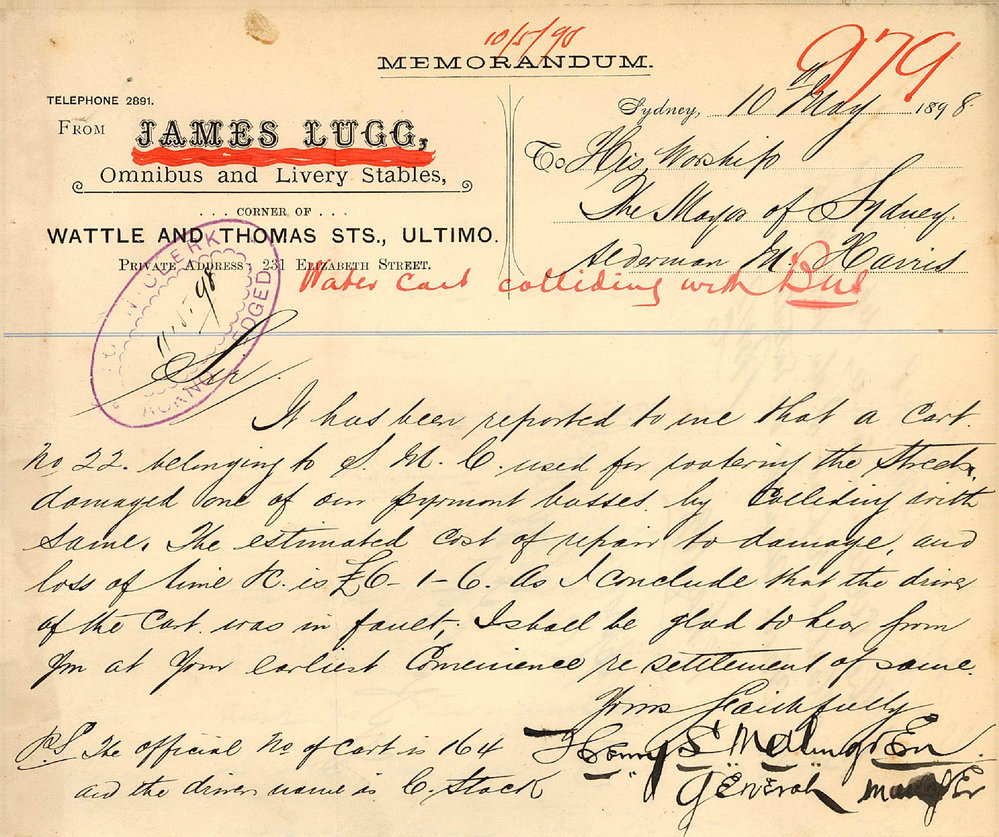 10/5/98
979
MEMORANDUM.
TELEPHONE 2891.
FROM JAMES LUGG,
Omnibus and Livery Stables,
... CORNER OF ...
WATTLE AND THOMAS STS., ULTIMO.
PRIVATE ADDRESS: 231 ELIZABETH STREET.
Sydney, 10th May 1898
To His Worship
The Mayor of Sydney.
Alderman M. Harris
Water Cart colliding with Bus
TOWN CLERK
11.5.98
ACKNOWLEDGED
Sir,
It has been reported to me that a Cart
No 22. belonging to S. M. C. used for watering the Streets,
damaged one of our pyrmont busses by Colliding with
Same. The estimated Cost of repair to damage, and
loss of time &c. is £6-1-6. As I conclude that the driver
of the Cart was in fault, I shall be glad to hear from
You at Your earliest Convenience re settlement of same.
Yours Faithfully
Henry S.
General Manager
PS The official No of Cart is 164
and the drivers name is C. Stock